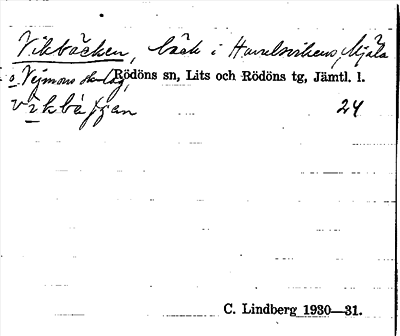 Vikbäcken, bäck i Havelsvikens, Mjäla
o. Vejmons skog, Rödöns sn, Lits och Rödöns tg, Jämtl. l.
24
C. Lindberg 1930—31.